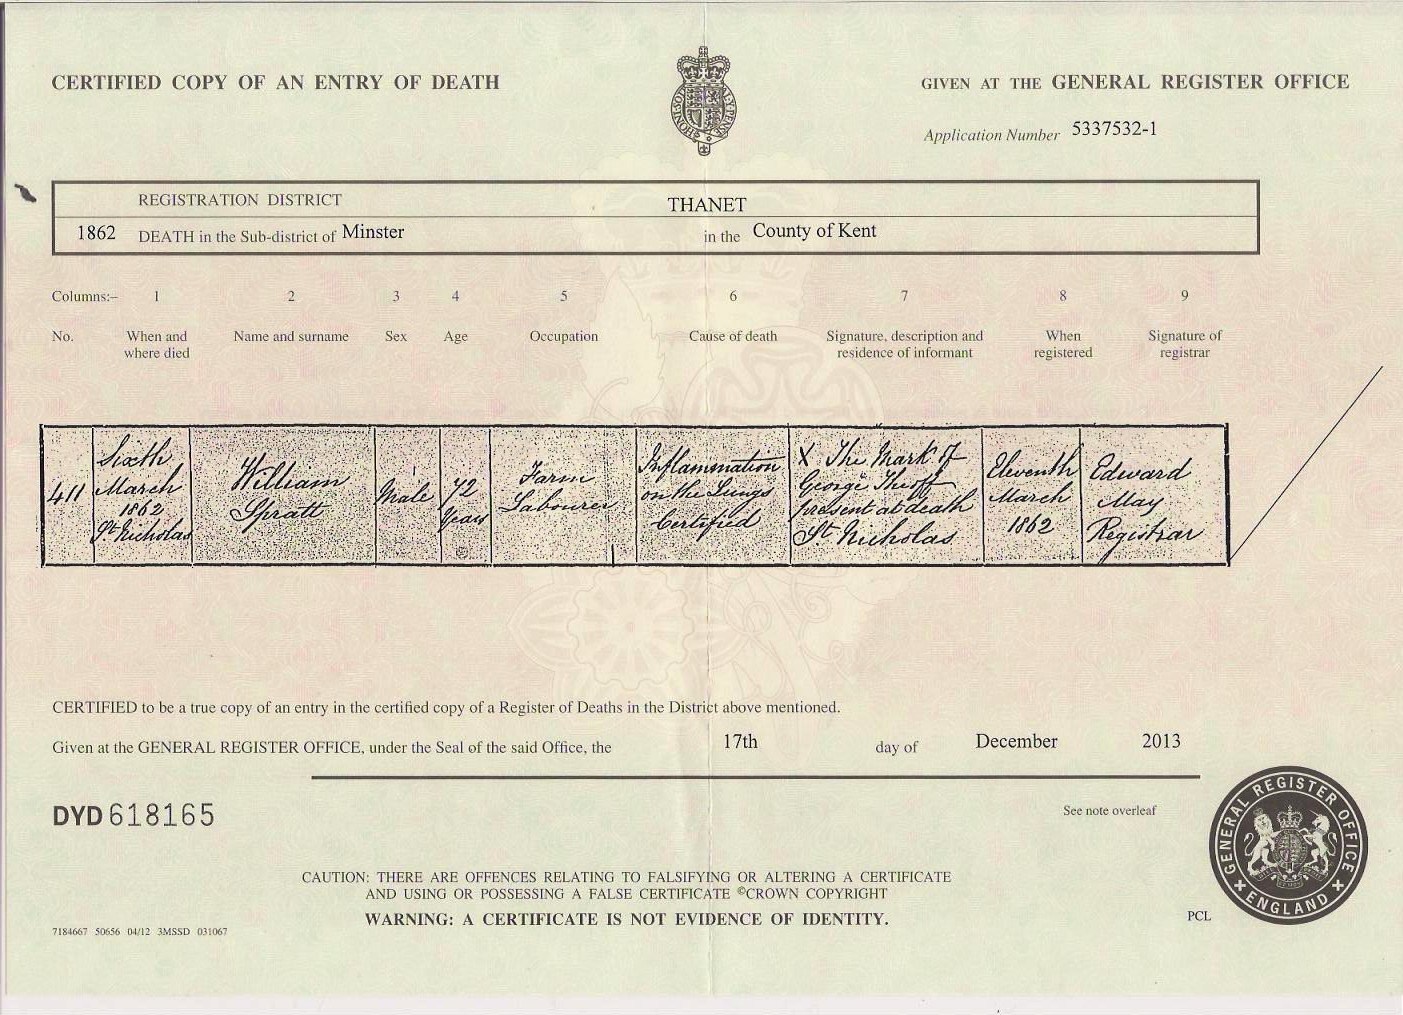 CERTIFIED COPY OF AN ENTRY OF DEATH
GIVEN AT THE GENERAL REGISTER OFFICE
Application Number 5337532-1
REGISTRATION DISTRICT THANET
1862 DEATH in the Sub-district of Minster in the County of Kent
Columns:- 1 2 3 4 5 6 7 8 9
No. When and where died Name and surname Sex Age Occupation Cause of death Signature, description and residence of informant When registered Signature of registrar
411
Sixth
March
1862
St Nicholas
William
Spratt
Male
72
Years
Farm
Labourer
Inflammation
on the Lungs
Certified
X The Mark of
George
present at death
St Nicholas
Eleventh
March
1862
Edward
May
Registrar
CERTIFIED to be a true copy of an entry in the certified copy of a Register of Deaths in the District above mentioned.
Given at the GENERAL REGISTER OFFICE, under the Seal of the said Office, the 17th day of December 2013
DYD 618165
See note overleaf
GENERAL REGISTER OFFICE
ENGLAND
CAUTION: THERE ARE OFFENCES RELATING TO FALSIFYING OR ALTERING A CERTIFICATE
AND USING OR POSSESSING A FALSE CERTIFICATE ©CROWN COPYRIGHT
WARNING: A CERTIFICATE IS NOT EVIDENCE OF IDENTITY.
PCL
7184667 50656 04/12 3MSSD 031067